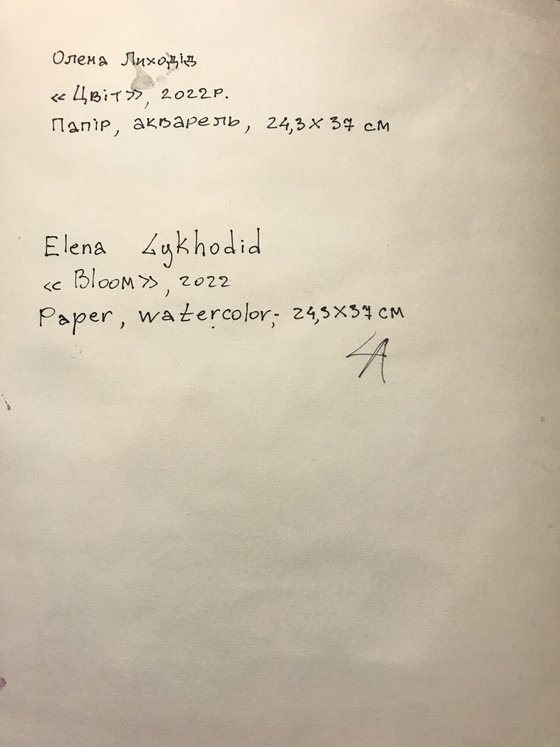 Олена Лиходід
«Цвіт», 2022р.
Папір, акварель, 24,3х37 см
Elena Lykhodid
«Bloom», 2022
Paper, watercolor, 24,3х37 см